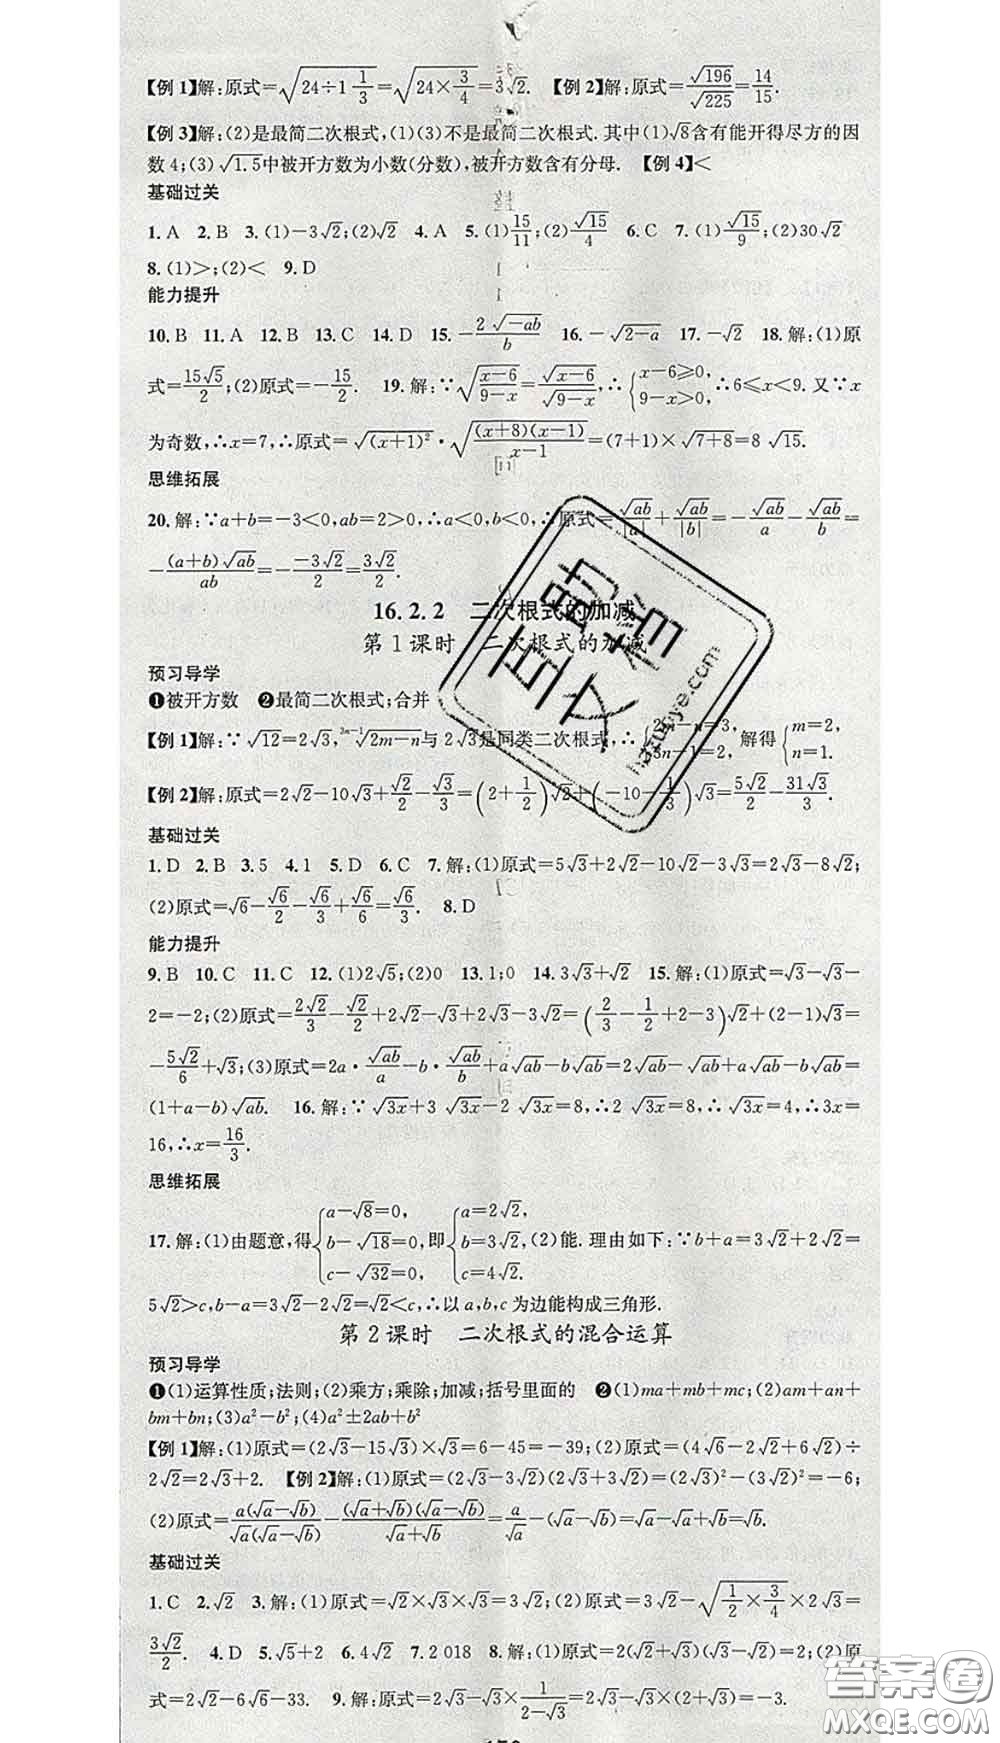 【例1】解:原式=√(24÷1 1/3)=√(24×3/4)=3√2. 【例2】解:原式=√196/√225=14/15.
【例3】解:(2)是最简二次根式,(1)(3)不是最简二次根式.其中(1)√8含有能开得尽方的因
数4;(3)√1.5中被开方数为小数(分数),被开方数含有分母. 【例4】<
基础过关
1.A 2.B 3.(1)-3√2;(2)√2 4.A 5.(1)15/11;(2)√15/4 6.C 7.(1)√15/9;(2)30√2
8.(1)>;(2)< 9.D
能力提升
10.B 11.A 12.B 13.C 14.D 15.-2√(-ab)/b 16.-√(2-a) 17.-√2 18.解:(1)原
式=15√5/2;(2)原式=-15/2. 19.解:∵√((x-6)/(9-x))=√(x-6)/√(9-x),∴{x-6≥0, 9-x>0,∴6≤x<9.又∵x
为奇数,∴x=7,∴原式=√((x+1)²)·√((x+8)(x-1)/(x-1))=(7+1)×√(7+8)=8√15.
思维拓展
20.解:∵a+b=-3<0,ab=2>0,∴a<0,b<0,∴原式=√ab/|a|+√ab/|b|=-√ab/a-√ab/b=
-(a+b)√ab/ab=-(-3√2)/2=3√2/2.
16.2.2 二次根式的加减
第1课时 二次根式的加减
预习导学
❶被开方数 ❷最简二次根式;合并
【例1】解:∵√12=2√3,与2√3是同类二次根式,∴ 解得{m=2, n=1.
【例2】解:原式=2√2-10√3+√2/2-√3/3=(2+1/2)√2+(-10-1/3)√3=5√2/2-31√3/3.
基础过关
1.D 2.B 3.5 4.1 5.D 6.C 7.解:(1)原式=5√3+2√3-10√2-3√3=2√3-8√2;
(2)原式=√6-√6/2-√6/3+√6/6=√6/3. 8.D
能力提升
9.B 10.C 11.C 12.(1)2√5;(2)0 13.1;0 14.3√3+√2 15.解:(1)原式=√3-√3-
2=-2;(2)原式=2√2/3-√2/2+2√2-√3+2√3-3√2=(2/3-1/2+2-3)√2+(2-1)√3=
-5√2/6+√3;(3)原式=2a·√ab/a-b·√ab/b+a√ab-b√ab=2√ab-√ab+a√ab-b√ab=
(1+a-b)√ab. 16.解:∵√3x+3√3x-2√3x=8,∴2√3x=8,∴√3x=4,∴3x=
16,∴x=16/3.
思维拓展
17.解:(1)由题意,得{a-√8=0, b-√18=0, c-√32=0,即{a=2√2, b=3√2, c=4√2.(2)能.理由如下:∵b+a=3√2+2√2=
5√2>c,b-a=3√2-2√2=√2<c,∴以a,b,c为边能构成三角形.
第2课时 二次根式的混合运算
预习导学
❶(1)运算性质;法则;(2)乘方;乘除;加减;括号里面的 ❷(1)ma+mb+mc;(2)am+an+
bm+bn;(3)a²-b²;(4)a²±2ab+b²
【例1】解:(1)原式=(2√3-15√3)×√3=6-45=-39;(2)原式=(4√6-2√2+6√2)÷
2√2=2√3+2. 【例2】解:(1)原式=(2√3-3√2)(2√3+3√2)=(2√3)²-(3√2)²=-6;
(2)原式=a(√a-√b)/√a(√a-√b)-(√a+√b)(√a-√b)/(√a+√b)=a/√a-(√a-√b)=√a-√a+√b=√b.
基础过关
1.C 2.√2 3.解:(1)原式=√2×√3×√3=3√2;(2)原式=3√2-√(1/2×3/4)×2√3=
3√2/2. 4.D 5.√5+2 6.4√2 7.2 018 8.解:(1)原式=2(√2+√3)(√3-√2)=2;(2)原
式=2√2-6√6-33. 9.解:原式=2√3-√3×1/(2-√3)=2√3-√3×(2+√3)=-3.
互助文档
hezuoye.com
答案圈
MXQE.COM